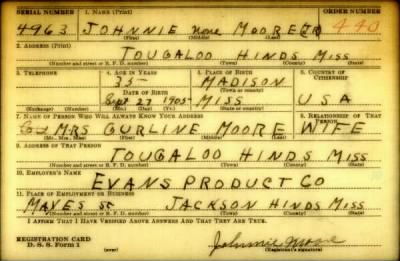 SERIAL NUMBER 1. NAME (Print) ORDER NUMBER
4963 JOHNNIE none MOORE JR 440
(First) (Middle) (Last)
2. ADDRESS (Print)
TOUGALOO HINDS MISS
(Number and street or R. F. D. number) (Town) (County) (State)
3. TELEPHONE 4. AGE IN YEARS 5. PLACE OF BIRTH 6. COUNTRY OF CITIZENSHIP
35 MADISON
DATE OF BIRTH (Town or county)
Sept 27 1905 MISS USA
(Exchange) (Number) (Mo.) (Day) (Yr.) (State or country)
7. NAME OF PERSON WHO WILL ALWAYS KNOW YOUR ADDRESS 8. RELATIONSHIP OF THAT PERSON
MRS GURLINE MOORE WIFE
(Mr., Mrs., Miss) (First) (Middle) (Last)
9. ADDRESS OF THAT PERSON
TOUGALOO HINDS MISS
(Number and street or R. F. D. number) (Town) (County) (State)
10. EMPLOYER'S NAME
EVANS PRODUCT CO
11. PLACE OF EMPLOYMENT OR BUSINESS
MAYES ST JACKSON HINDS MISS
(Number and street or R. F. D. number) (Town) (County) (State)
I AFFIRM THAT I HAVE VERIFIED ABOVE ANSWERS AND THAT THEY ARE TRUE.
REGISTRATION CARD
D. S. S. Form 1 Johnnie Moore
(Registrant's signature)